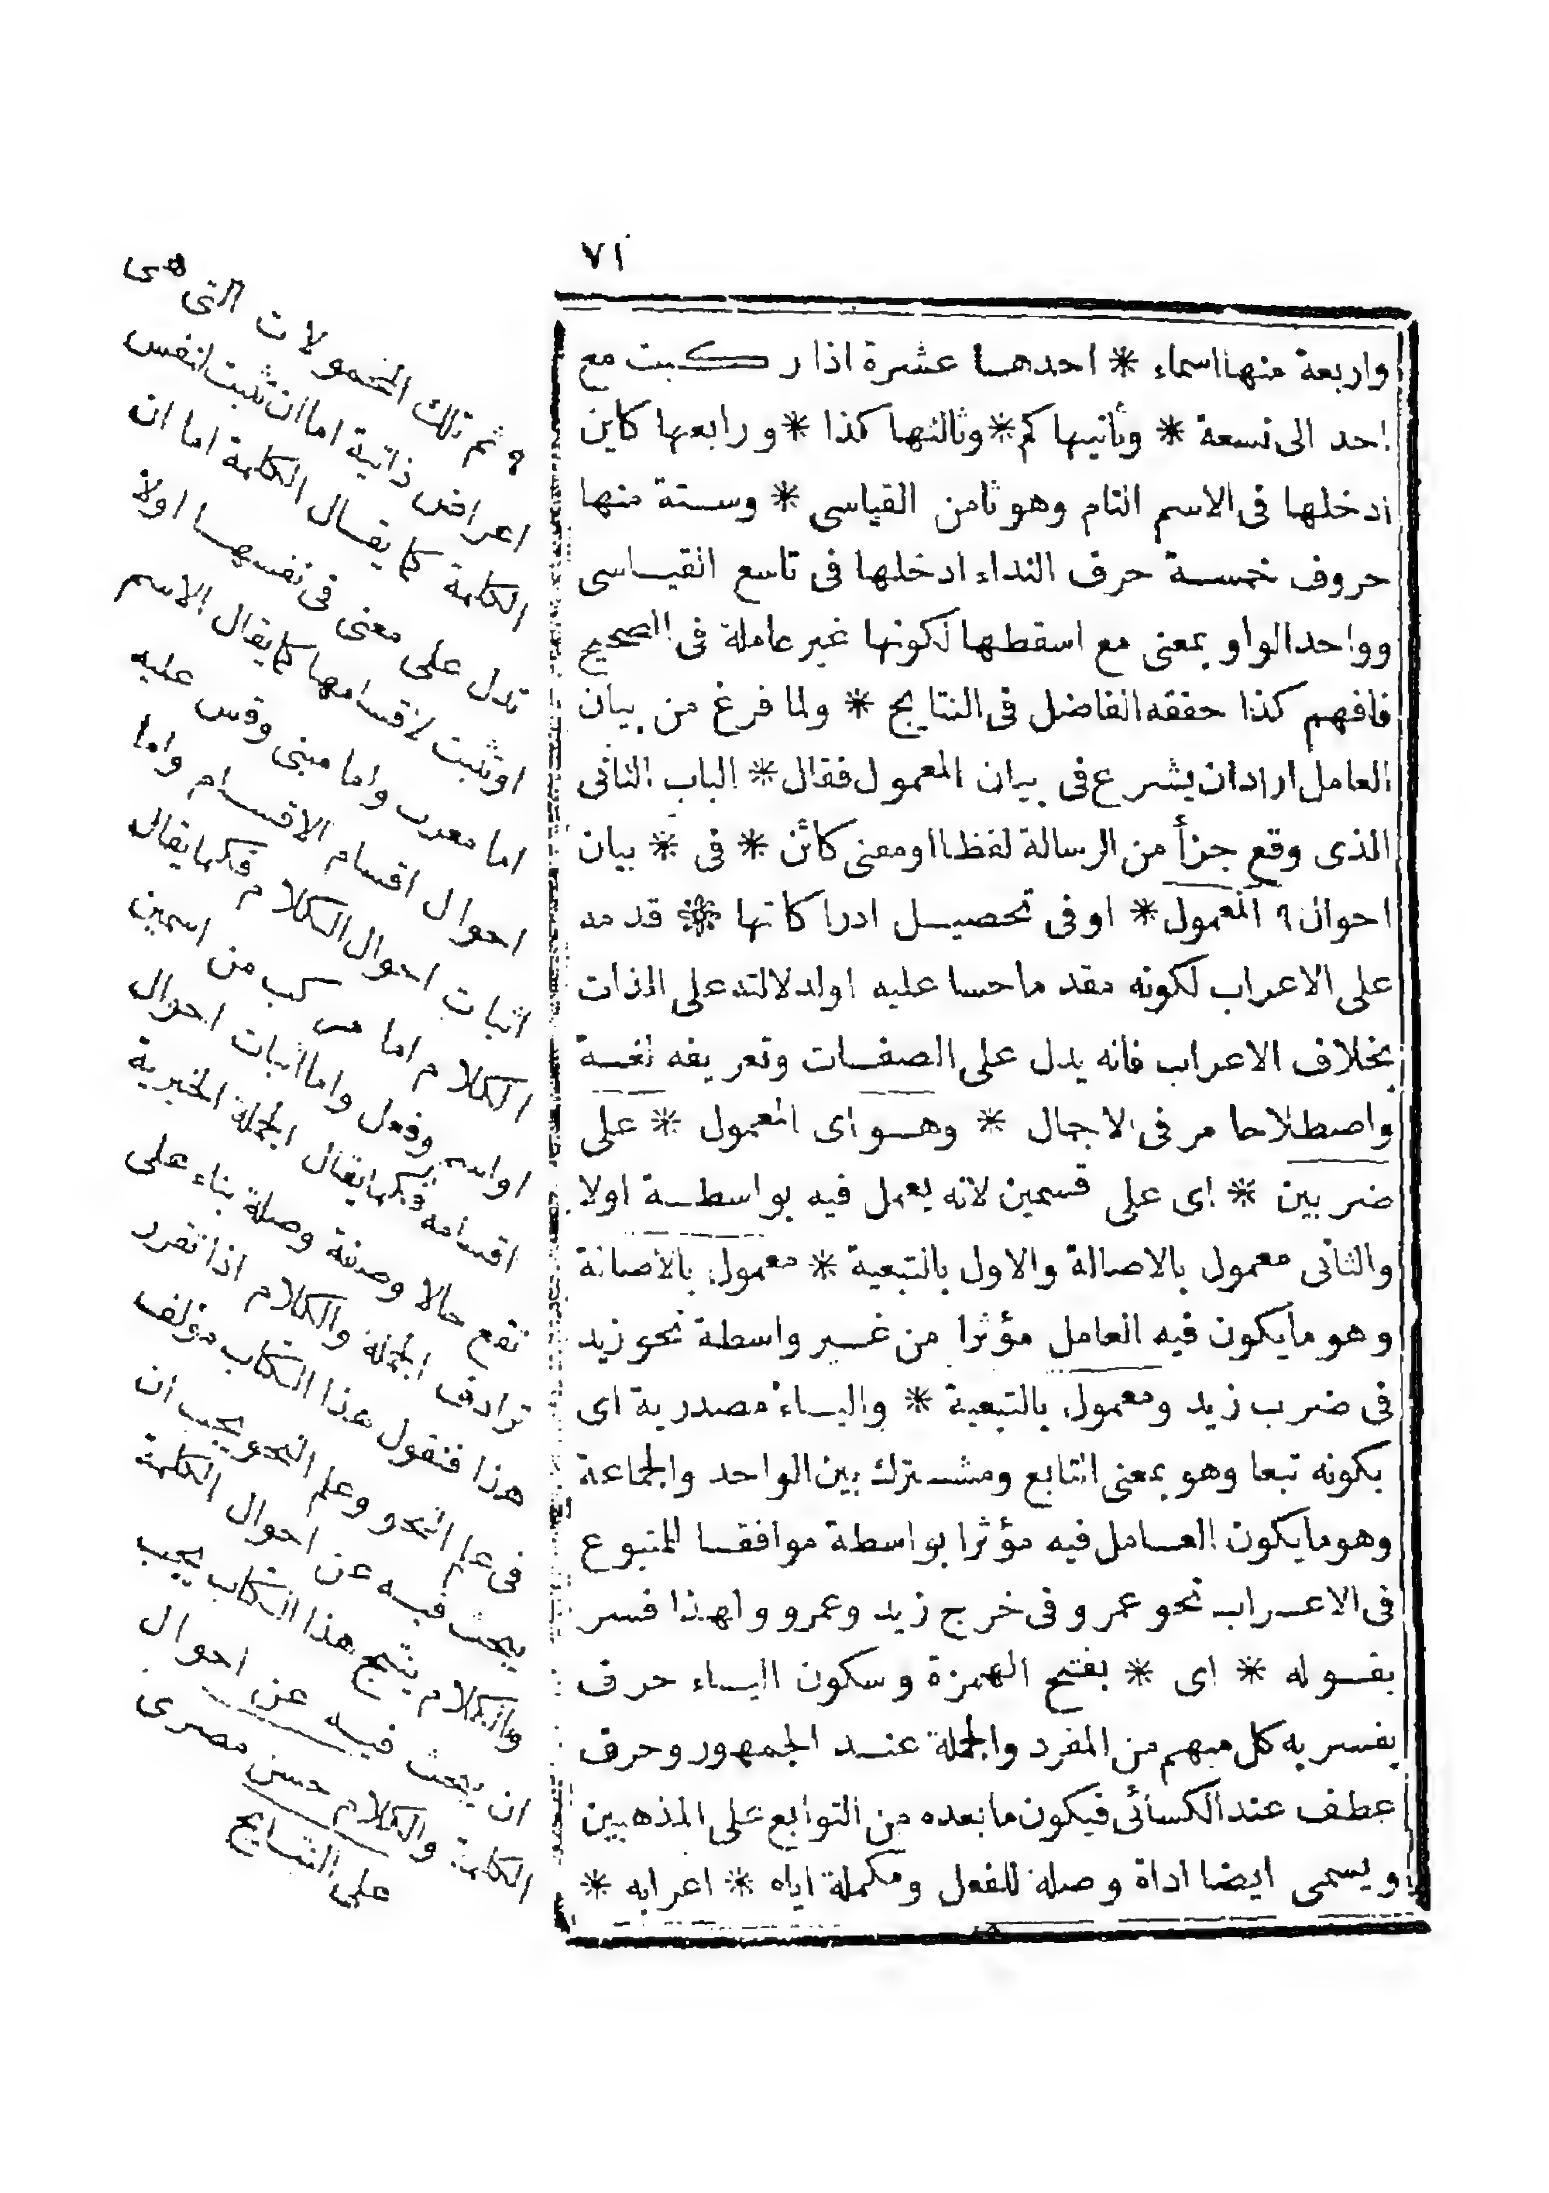 ٧١
واربعة منها اسماء * احدهــا عشرة اذا ركــبت مع
احد الى تسعة * وثانيها كم * وثالثها كذا * ورابعها كاين
ادخلها فى الاسم التام وهو ثامن القياسى * وســتة منها
حروف خمســة حرف النداء ادخلها فى تاسع القيــاسى
وواحد الواو بمعنى مع اسقطها لكونها غير عاملة فى الصحيح
فافهم كذا حققه الفاضل فى النتايج * ولما فرغ من بيان
العامل اراد ان يشرع فى بيان المعمول فقال * الباب الثانى
الذى وقع جزأ من الرسالة لفظا او معنى كائن * فى * بيان
احوال ٩ المعمول * او فى تحصيــل ادراكاتها * قدمه
على الاعراب لكونه مقدما حسا عليه اولدلالته على الذات
بخلاف الاعراب فانه يدل على الصفــات وتعريفه لغــة
واصطلاحا مر فى الاجمال * وهــو اى المعمول * على
ضربين * اى على قسمين لانه يعمل فيه بواسطــة اولا
والثانى معمول بالاصالة والاول بالتبعية * معمول بالاصالة
وهو ما يكون فيه العامل مؤثرا من غــير واسطة نحو زيد
فى ضرب زيد ومعمول بالتبعية * واليــاء مصدرية اى
بكونه تبعا وهو بمعنى التابع ومشــترك بين الواحد والجماعة
وهو ما يكون العــامل فيه مؤثرا بواسطة موافقــا للمتبوع
فى الاعــراب نحو عمرو فى خرج زيد وعمرو ولهذا فسر
بقــوله * اى * بفتح الهمزة وسكون اليــاء حرف
يفسر به كل مبهم من المفرد والجملة عنــد الجمهور وحرف
عطف عند الكسائى فيكون ما بعده من التوابع على المذهبين
ويسمى ايضا اداة وصلة للفعل ومكملة اياه * اعرابه *
٩ ثم تلك المحمولات التى هى
اعراض ذاتية اما ان تثبت لنفس
الكلمة كما يقــال الكلمة اما ان
تدل على معنى فى نفسهــا اولا
اوتثبت لاقسامها كما يقال الاسم
اما معرب واما مبنى وقس عليه
احوال اقسام الاقســام واما
اثبات احوال الكلام فكما يقال
الكلام اما مركب من اسمين
او اسم وفعل واما اثبات احوال
اقسامه فكما يقال الجملة الخبرية
تقع حالا وصفة وصلة بناء على
ترادف الجملة والكلام اذا تقرر
هذا فنقول هذا الكتاب مؤلف
فى علم النحو وعلم النحو يجب ان
يبحث فيــه عن احوال الكلمة
والكلام ينتج هذا الكتاب يجب
ان يبحث فيــه عن احوال
الكلمة والكلام حسن مصرى
على النتــايج